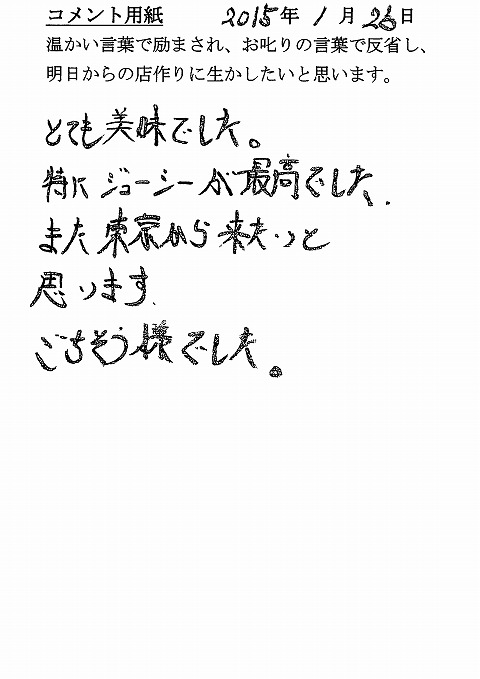 コメント用紙 2015年 1月 26日
温かい言葉で励まされ、お叱りの言葉で反省し、
明日からの店作りに生かしたいと思います。
とても美味でした。
特に ジョーシーが最高でした.
また東京から来たいと
思います.
ごちそう様でした。